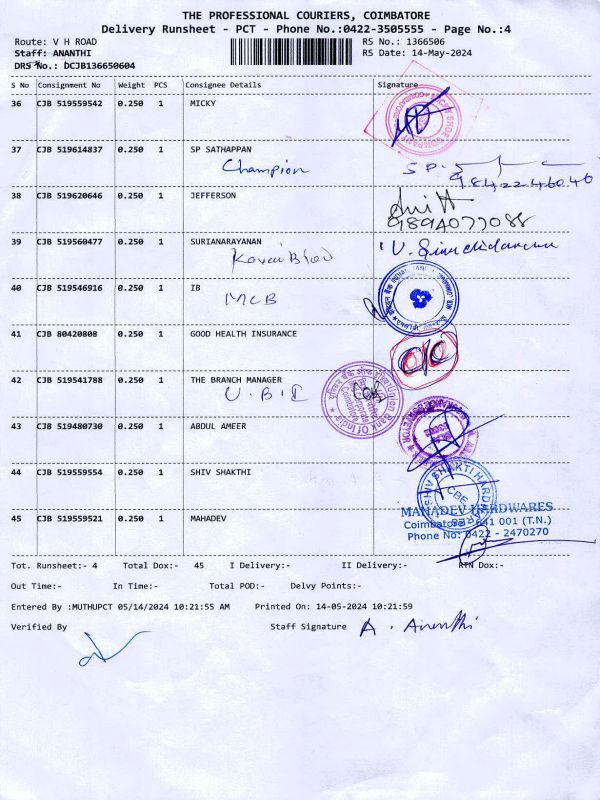 THE PROFESSIONAL COURIERS, COIMBATORE
Delivery Runsheet - PCT - Phone No.:0422-3505555 - Page No.:4
Route: V H ROAD
RS No.: 1366506
Staff: ANANTHI
RS Date: 14-May-2024
DRS No.: DCJB136650604
S No Consignment No Weight PCS Consignee Details Signature
36 CJB 519559542 0.250 1 MICKY
37 CJB 519614837 0.250 1 SP SATHAPPAN
Champion
S P.
98422 46046
38 CJB 519620646 0.250 1 JEFFERSON
9894077088
39 CJB 519560477 0.250 1 SURIANARAYANAN
Kovai Blou
40 CJB 519546916 0.250 1 IB
MCB
41 CJB 80420808 0.250 1 GOOD HEALTH INSURANCE
42 CJB 519541788 0.250 1 THE BRANCH MANAGER
U.B.I
Union Bank Of India
43 CJB 519480730 0.250 1 ABDUL AMEER
44 CJB 519559554 0.250 1 SHIV SHAKTHI
SHIV SHAKTI HARDWARES
CBE
45 CJB 519559521 0.250 1 MAHADEV
MAHADEV HARDWARES
Coimbatore - 641 001 (T.N.)
Phone No: 0422 - 2470270
Tot. Runsheet:- 4 Total Dox:- 45 I Delivery:- II Delivery:- RTN Dox:-
Out Time:- In Time:- Total POD:- Delvy Points:-
Entered By :MUTHUPCT 05/14/2024 10:21:55 AM Printed On: 14-05-2024 10:21:59
Verified By Staff Signature A. Ananthi